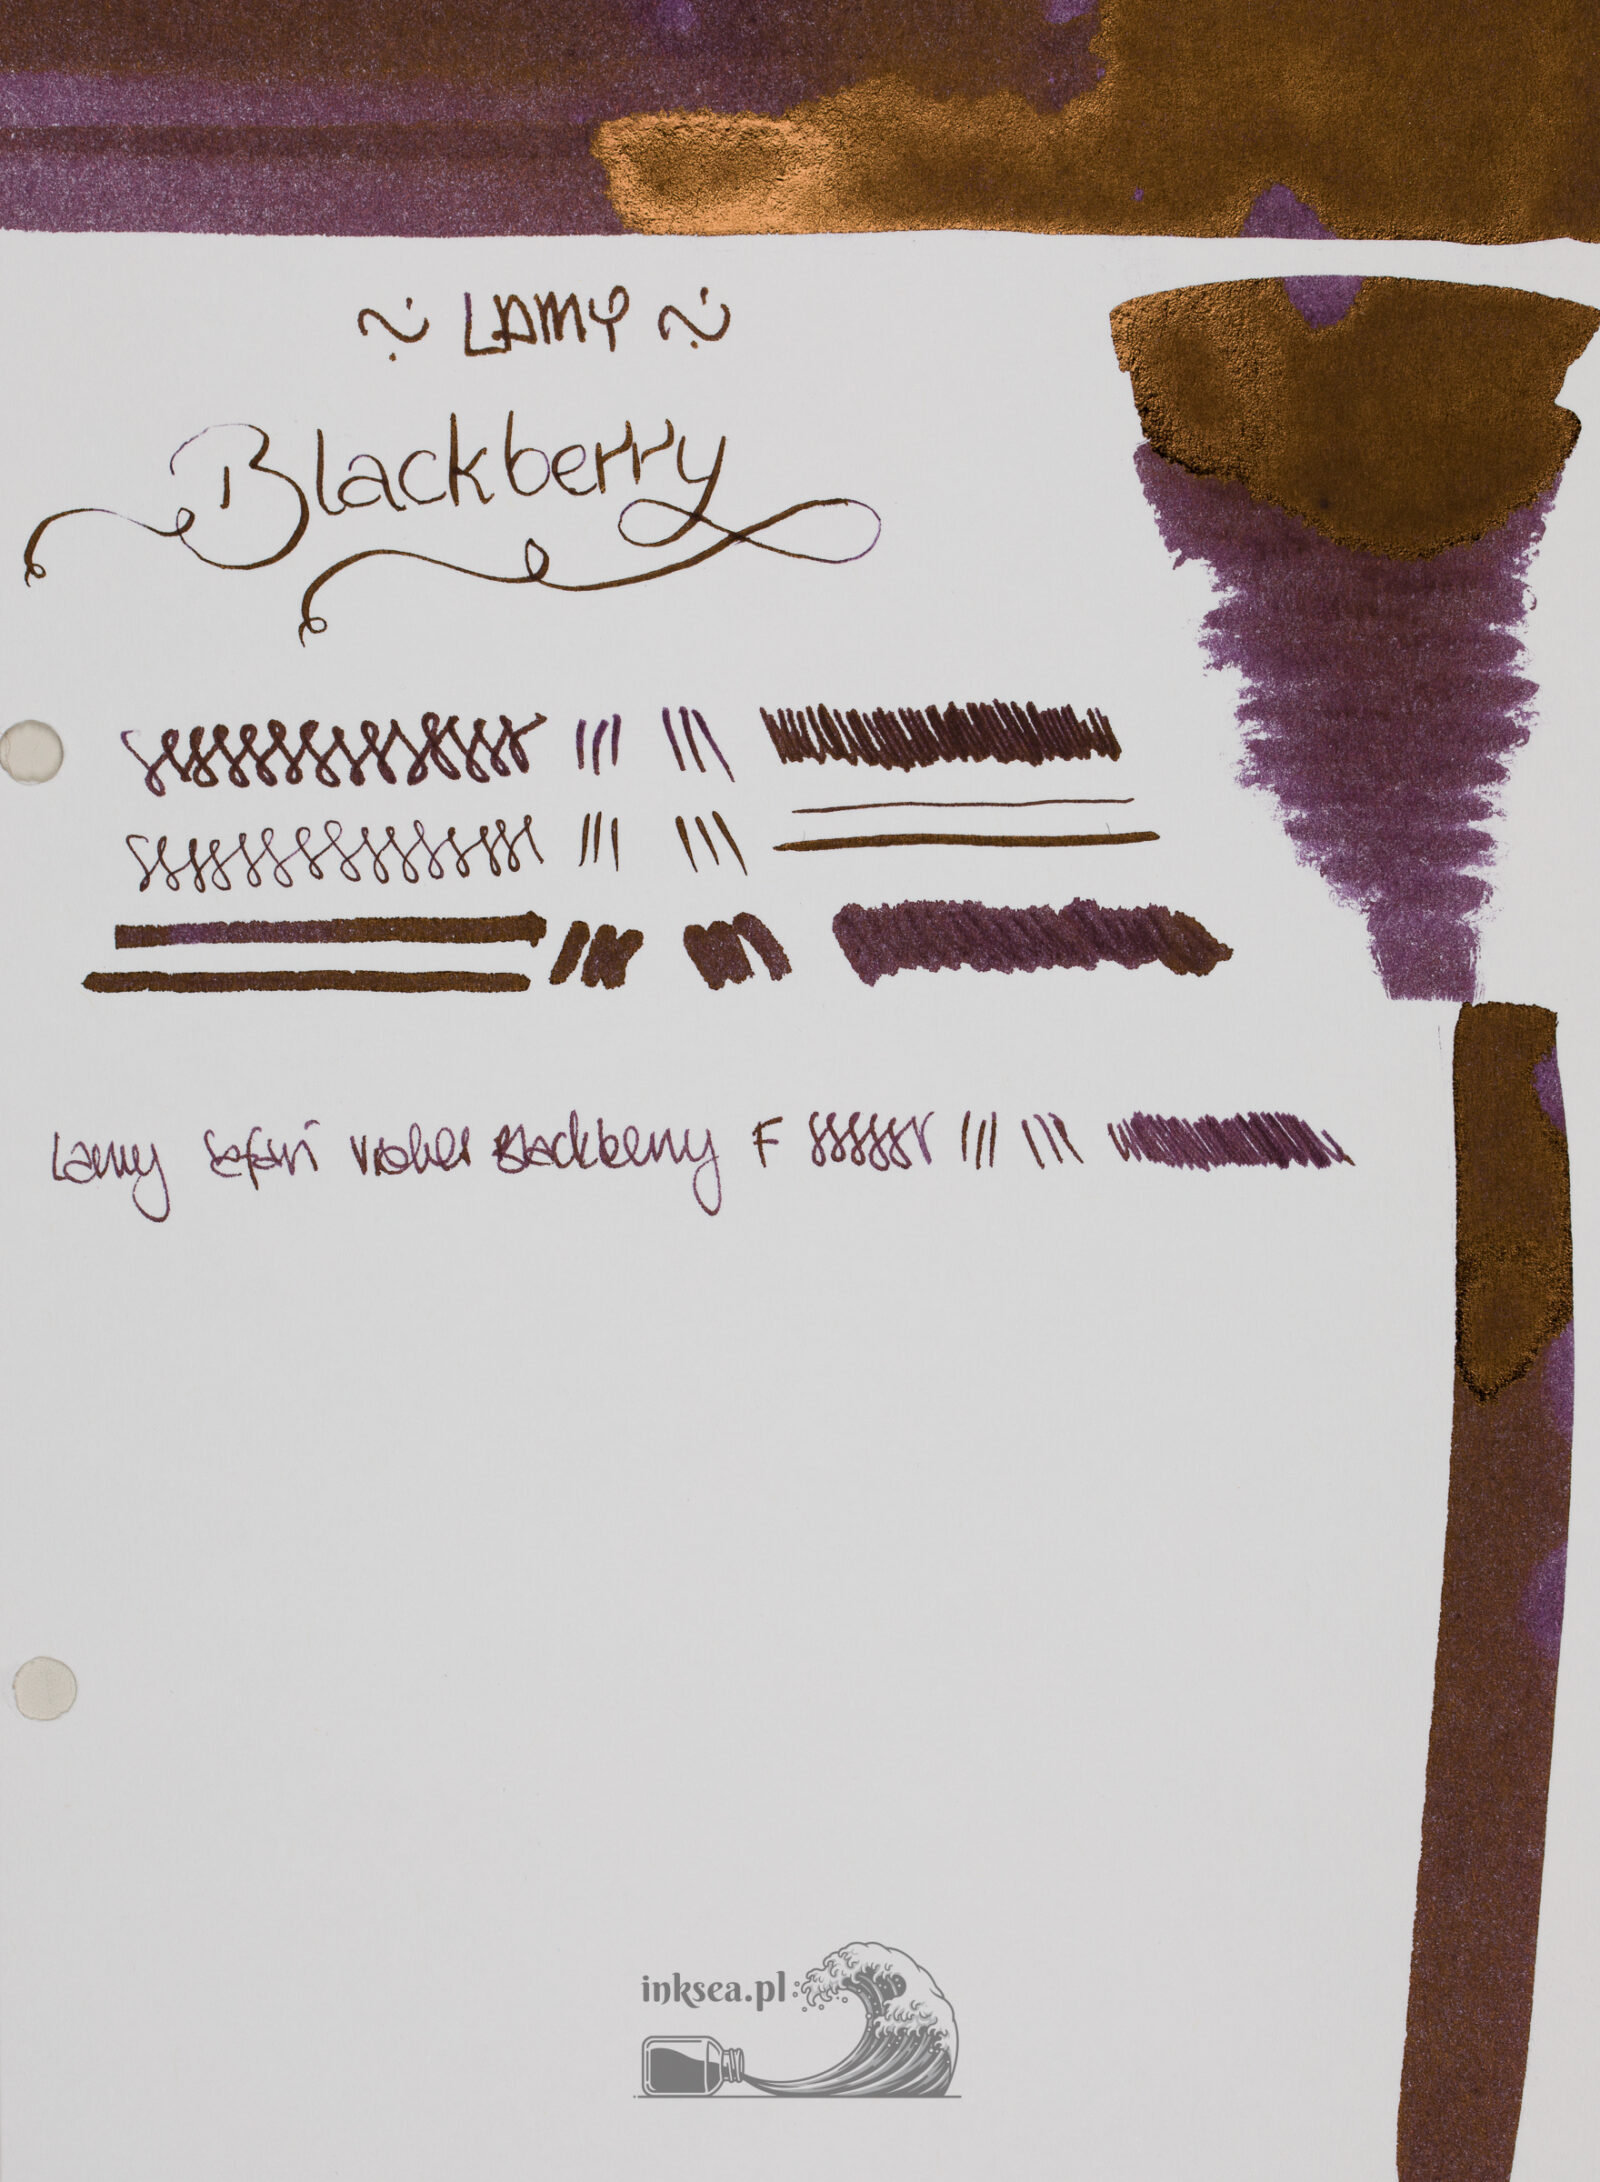 ~ LAMY ~
Blackberry
Lamy Safari Violet Blackberry F
inksea.pl